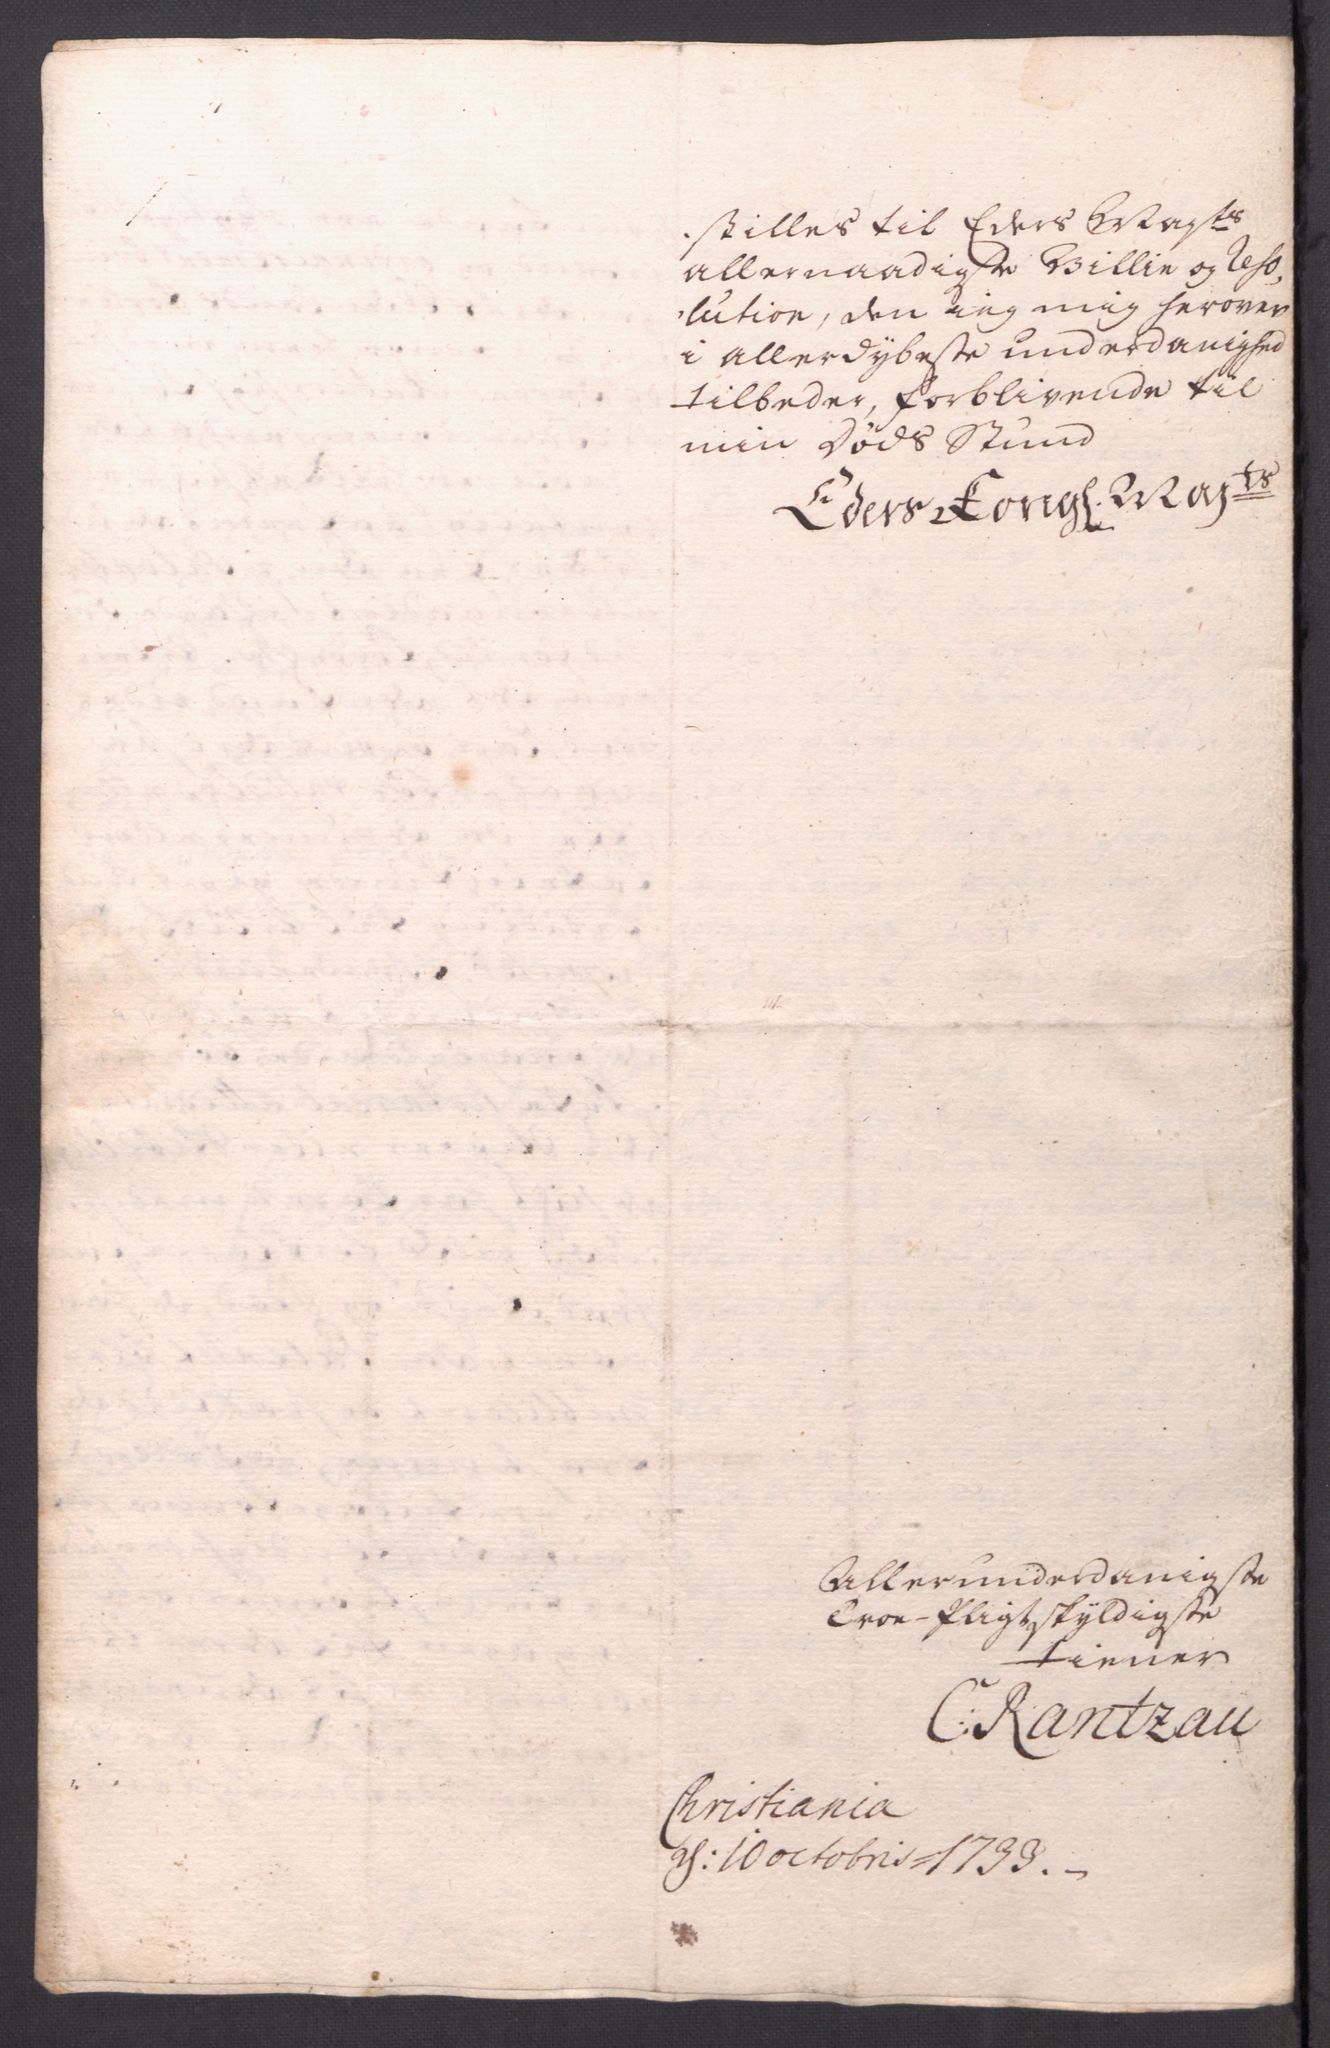 stilles til Eders Mayts
allernaadigste Villie og Reso,
lution, den ieg mig herover
i allerdybeste underdanighed
tilbeder, forblivende til
min Døds Stund
Eders Kongl. Mayts
Allerunderdanigste
Troe-Pligtskyldigste
tiener
C: Rantzau
Christiania
d: 10 octobris 1733.